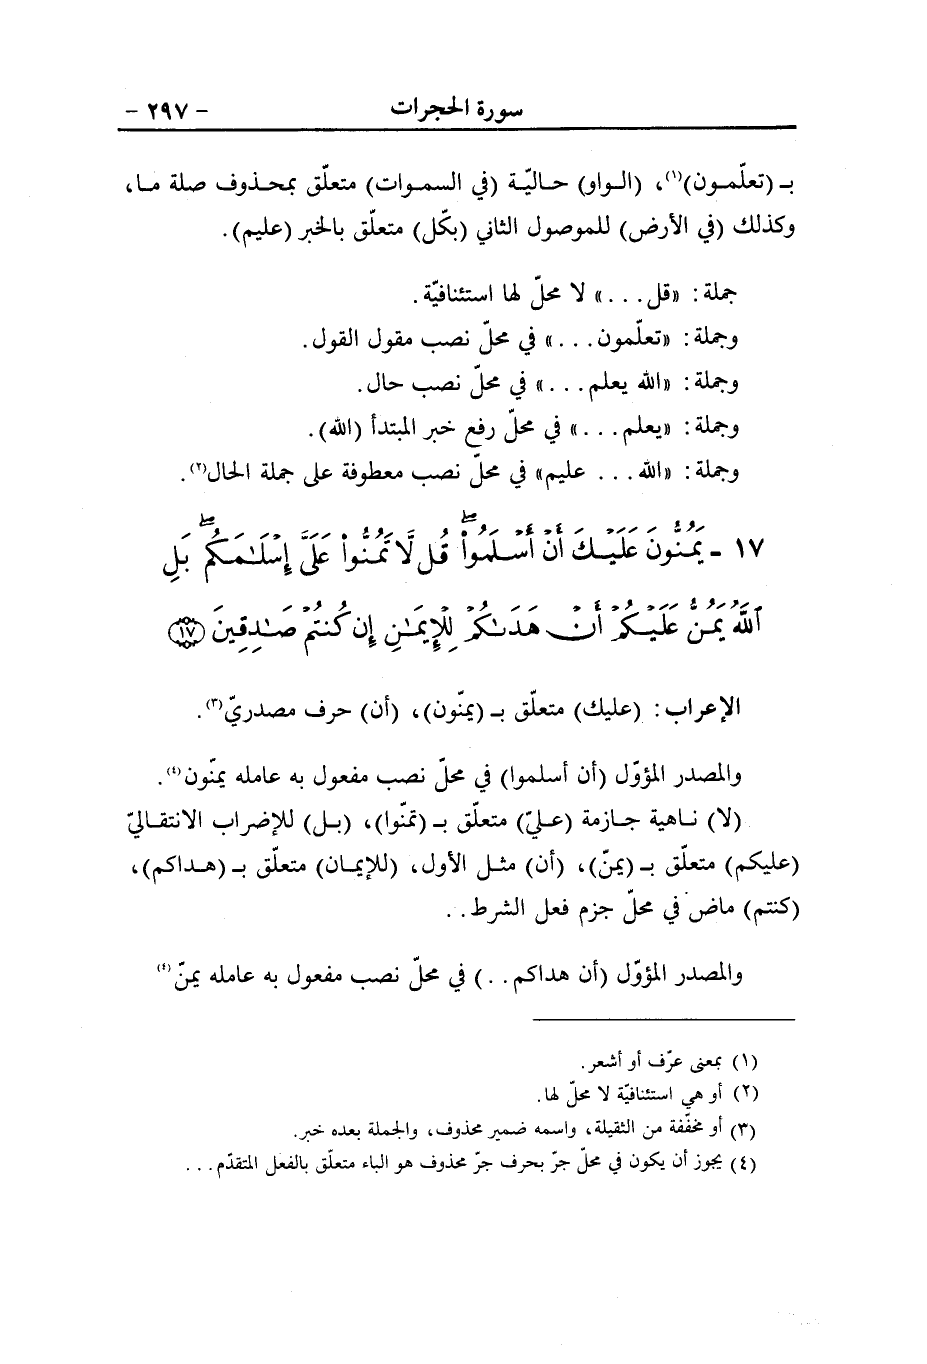 سورة الحجرات - ٢٩٧ -
بـ (تعلّمون)(١)، (الواو) حاليّة (في السموات) متعلّق بمحذوف صلة ما،
وكذلك (في الأرض) للموصول الثاني (بكّل) متعلّق بالخبر (عليم).
جملة: «قل...» لا محلّ لها استئنافيّة.
وجملة: «تعلّمون...» في محلّ نصب مقول القول.
وجملة: «الله يعلم...» في محلّ نصب حال.
وجملة: «يعلم...» في محلّ رفع خبر المبتدأ (الله).
وجملة: «الله... عليم» في محلّ نصب معطوفة على جملة الحال(٢).
١٧ - يَمُنُّونَ عَلَيْكَ أَنْ أَسْلَمُواْۖ قُل لَّا تَمُنُّواْ عَلَىَّ إِسْلَٰمَكُمۖ بَلِ
ٱللَّهُ يَمُنُّ عَلَيْكُمْ أَنْ هَدَىٰكُمْ لِلْإِيمَٰنِ إِن كُنتُمْ صَٰدِقِينَ ١٧
الإعراب: (عليك) متعلّق بـ (يمنّون)، (أن) حرف مصدريّ(٣).
والمصدر المؤوّل (أن أسلموا) في محلّ نصب مفعول به عامله يمنّون(٤).
(لا) ناهية جازمة (عليّ) متعلّق بـ (تمنّوا)، (بل) للإضراب الانتقاليّ
(عليكم) متعلّق بـ (يمنّ)، (أن) مثل الأول، (للإيمان) متعلّق بـ (هداكم)،
(كنتم) ماض في محلّ جزم فعل الشرط..
والمصدر المؤوّل (أن هداكم..) في محلّ نصب مفعول به عامله يمنّ(٤)
(١) بمعنى عرّف أو أشعر.
(٢) أو هي استئنافيّة لا محلّ لها.
(٣) أو مخفّفة من الثقيلة، واسمه ضمير محذوف، والجملة بعده خبر.
(٤) يجوز أن يكون في محلّ جرّ بحرف جرّ محذوف هو الباء متعلّق بالفعل المتقدّم...